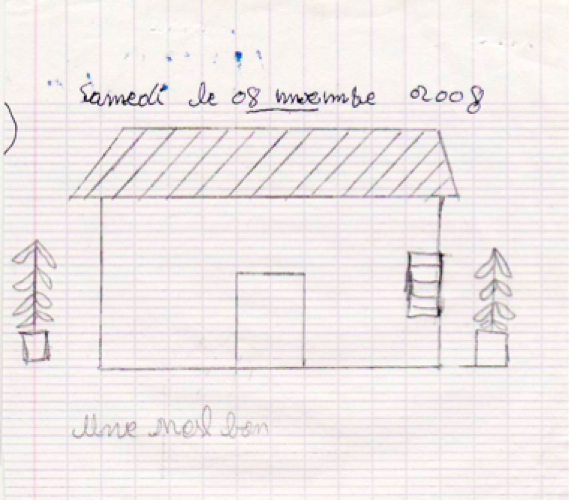 Samedi le 08 novembre 2008
Une